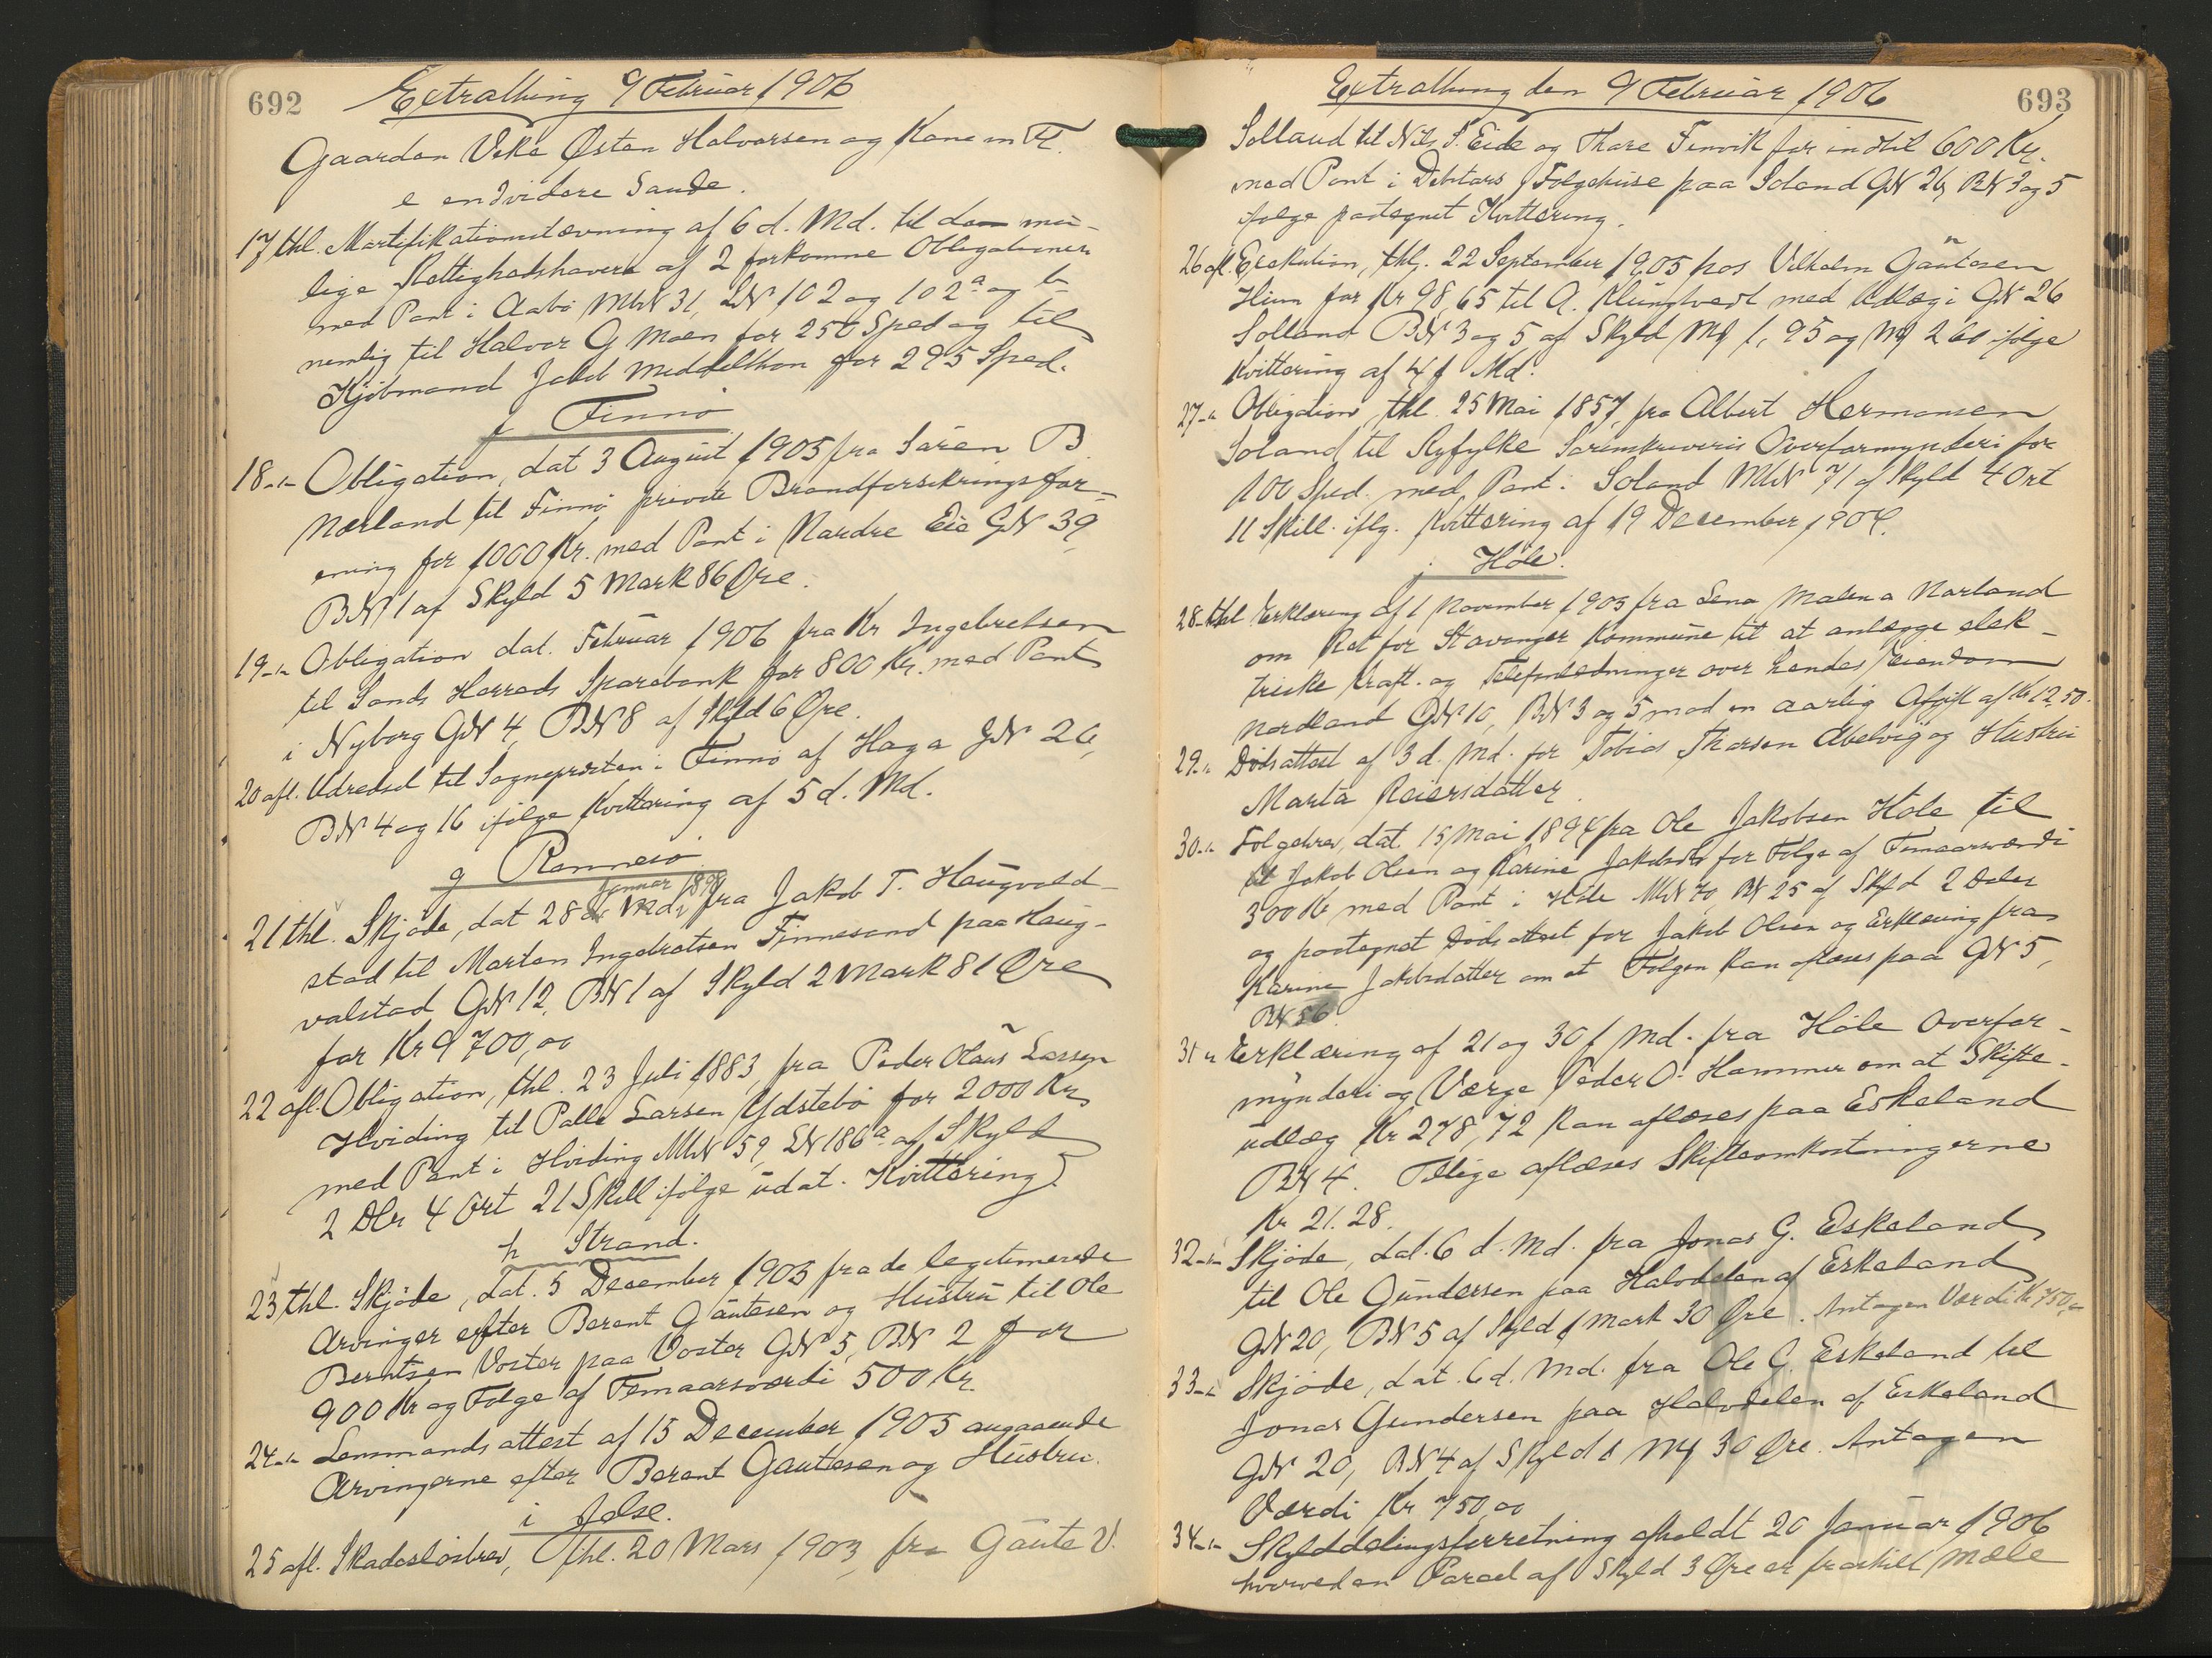 692
Extrathing 9 Februar 1906
Gaarden Veka Østen Halvorsen og Kone m Fl.
e endvidere Saude.
17 thl. Mortifikationsstævning af 6 d. Md. til dem mu-
lige Rettighedshavere af 2 forkomne Obligationer
med Pant i Aabø MNo 31, LNo 102 og 102a og b
nemlig til Halvor G Moen for 250 Sped og til
Kjøbmand Jakob Middelthon for 295 Sped.
f Finnø
18 -"- Obligation, dat 3 August 1905 fra Søren B.
Nærland til Finnø private Brandforsikringsfor-
ening for 1000 Kr. med Pant i Nardre Eie GN 39
BN 1 af Skyld 5 Mark 86 Øre.
19 -"- Obligation dat. Februar 1906 fra Kr Ingebretsen
til Sands Herreds Sparebank for 800 Kr. med Pant
i Nyborg GN 4 BN 8 af Skyld 6 Øre.
20 afl. Udredsel til Sognepresten i Finnø af Haga GN 26,
BN 4 og 16 ifølge Kvittering af 5 d. Md.
g Rennesø
21 thl. Skjøde, dat 28 Januar 1899 fra Jakob T. Haugvald-
stad til Morten Ingebretsen Finnesand paa Haug-
valstad GN 12, BN 1 af Skyld 2 Mark 81 Øre
for Kr 9 700,00
22 afl. Obligation, thl. 23 Juli 1883 fra Peder Olaus Larsen
Hviding til Palle Larsen Ydstebø for 2000 Kr
med Pant i Hviding MN 59 LN 186a af Skyld
2 Dlr 4 Ort 21 Skill ifølge udat. Kvittering.
h Strand.
23 thl. Skjøde, dat. 5 December 1905 fra de legitimerede
Arvinger efter Berent Gautesen og Hustru til Ole
Berntsen Voster paa Voster GN 5, BN 2 for
900 Kr og Følge af Femaarsværdi 500 Kr.
24 -"- Lensmandsattest af 15 December 1905 angaaende
Arvingerne efter Berent Gautesen og Hustru.
i Jelse.
25 afl. Skadesløsbrev, thl. 20 Mars 1903, fra Gaute V.
693
Extrathing den 9 Februar 1906
Solland til Nils S. Eide og Thore Finvik for indtil 600 Kr.
med Pant i Debitors Følgehuse paa Soland GN 26, BN 3 og 5
ifølge paategnet Kvittering.
26 afl. Exekution, thl. 22 September 1905 hos Vilhelm Gautesen
Hiim for Kr 98,65 til A. Klungtvedt med Udlæg i GN 26
Solland BN 3 og 5 af Skyld M 1,95 og M 2 60 ifølge
Kvittering af 4 f Md.
27 -"- Obligation, thl. 25 Mai 1857, fra Albert Hermansen
Soland til Ryfylke Sorenskriveris Overformynderi for
100 Sped. med Pant i Soland MN 71 af Skyld 4 Ort
11 Skill. iflg. Kvittering af 19 December 1904.
j. Høle.
28 thl Erklæring af 1 November 1905 fra Lena Malena Narland
om Ret for Stavanger Kommune til at anlægge elek-
triske Kraft- og Telefonledninger over hendes Eiendom
Nordland GN 10, BN 3 og 5 mod en aarlig Afgift af Kr 12,50.
29 -"- Dødsattest af 3 d. Md. for Tobias Tharsen Abelvig og Hustru
Marta Reiersdatter.
30 -"- Følgebrev, dat. 15 Mai 1894 fra Ole Jakobsen Høle til
til Jakob Olsen og Karine Jakobsdtr for Følge af Femaarsværdi
300 Kr med Pant i Høle MN 70, BN 25 af Skyld 2 Daler
og paategnet Dødsattest for Jakob Olsen og Erklæring fra
Karine Jakobsdatter om at Følgen kan aflæses paa GN 5,
BN 56.
31 -"- Erklæring af 21 og 30 f Md. fra Høle Overfor-
mynderi og Værge Peder O. Hammer om at Skifte-
udlæg Kr 278,72 kan aflæses paa Eskeland
BN 4. Tillige aflæses Skifteomkostningerne
Kr 21.28.
32 -"- Skjøde, dat. 6 d. Md. fra Jonas G. Eskeland
til Ole Gundersen paa Halvdelen af Eskeland
GN 20, BN 5 af Skyld 1 Mark 30 Øre. Antagen Værdi Kr 750,00
33 -"- Skjøde, dat. 6 d. Md. fra Ole G. Eskeland til
Jonas Gundersen paa Halvdelen af Eskeland
GN 20, BN 4 af Skyld 1 M 30 Øre. Antagen
Værdi Kr 750,00
34 -"- Skylddelingsforretning afholdt 20 Januar 1906
hvorved en Parcel af Skyld 3 Øre er fraskilt Mæle